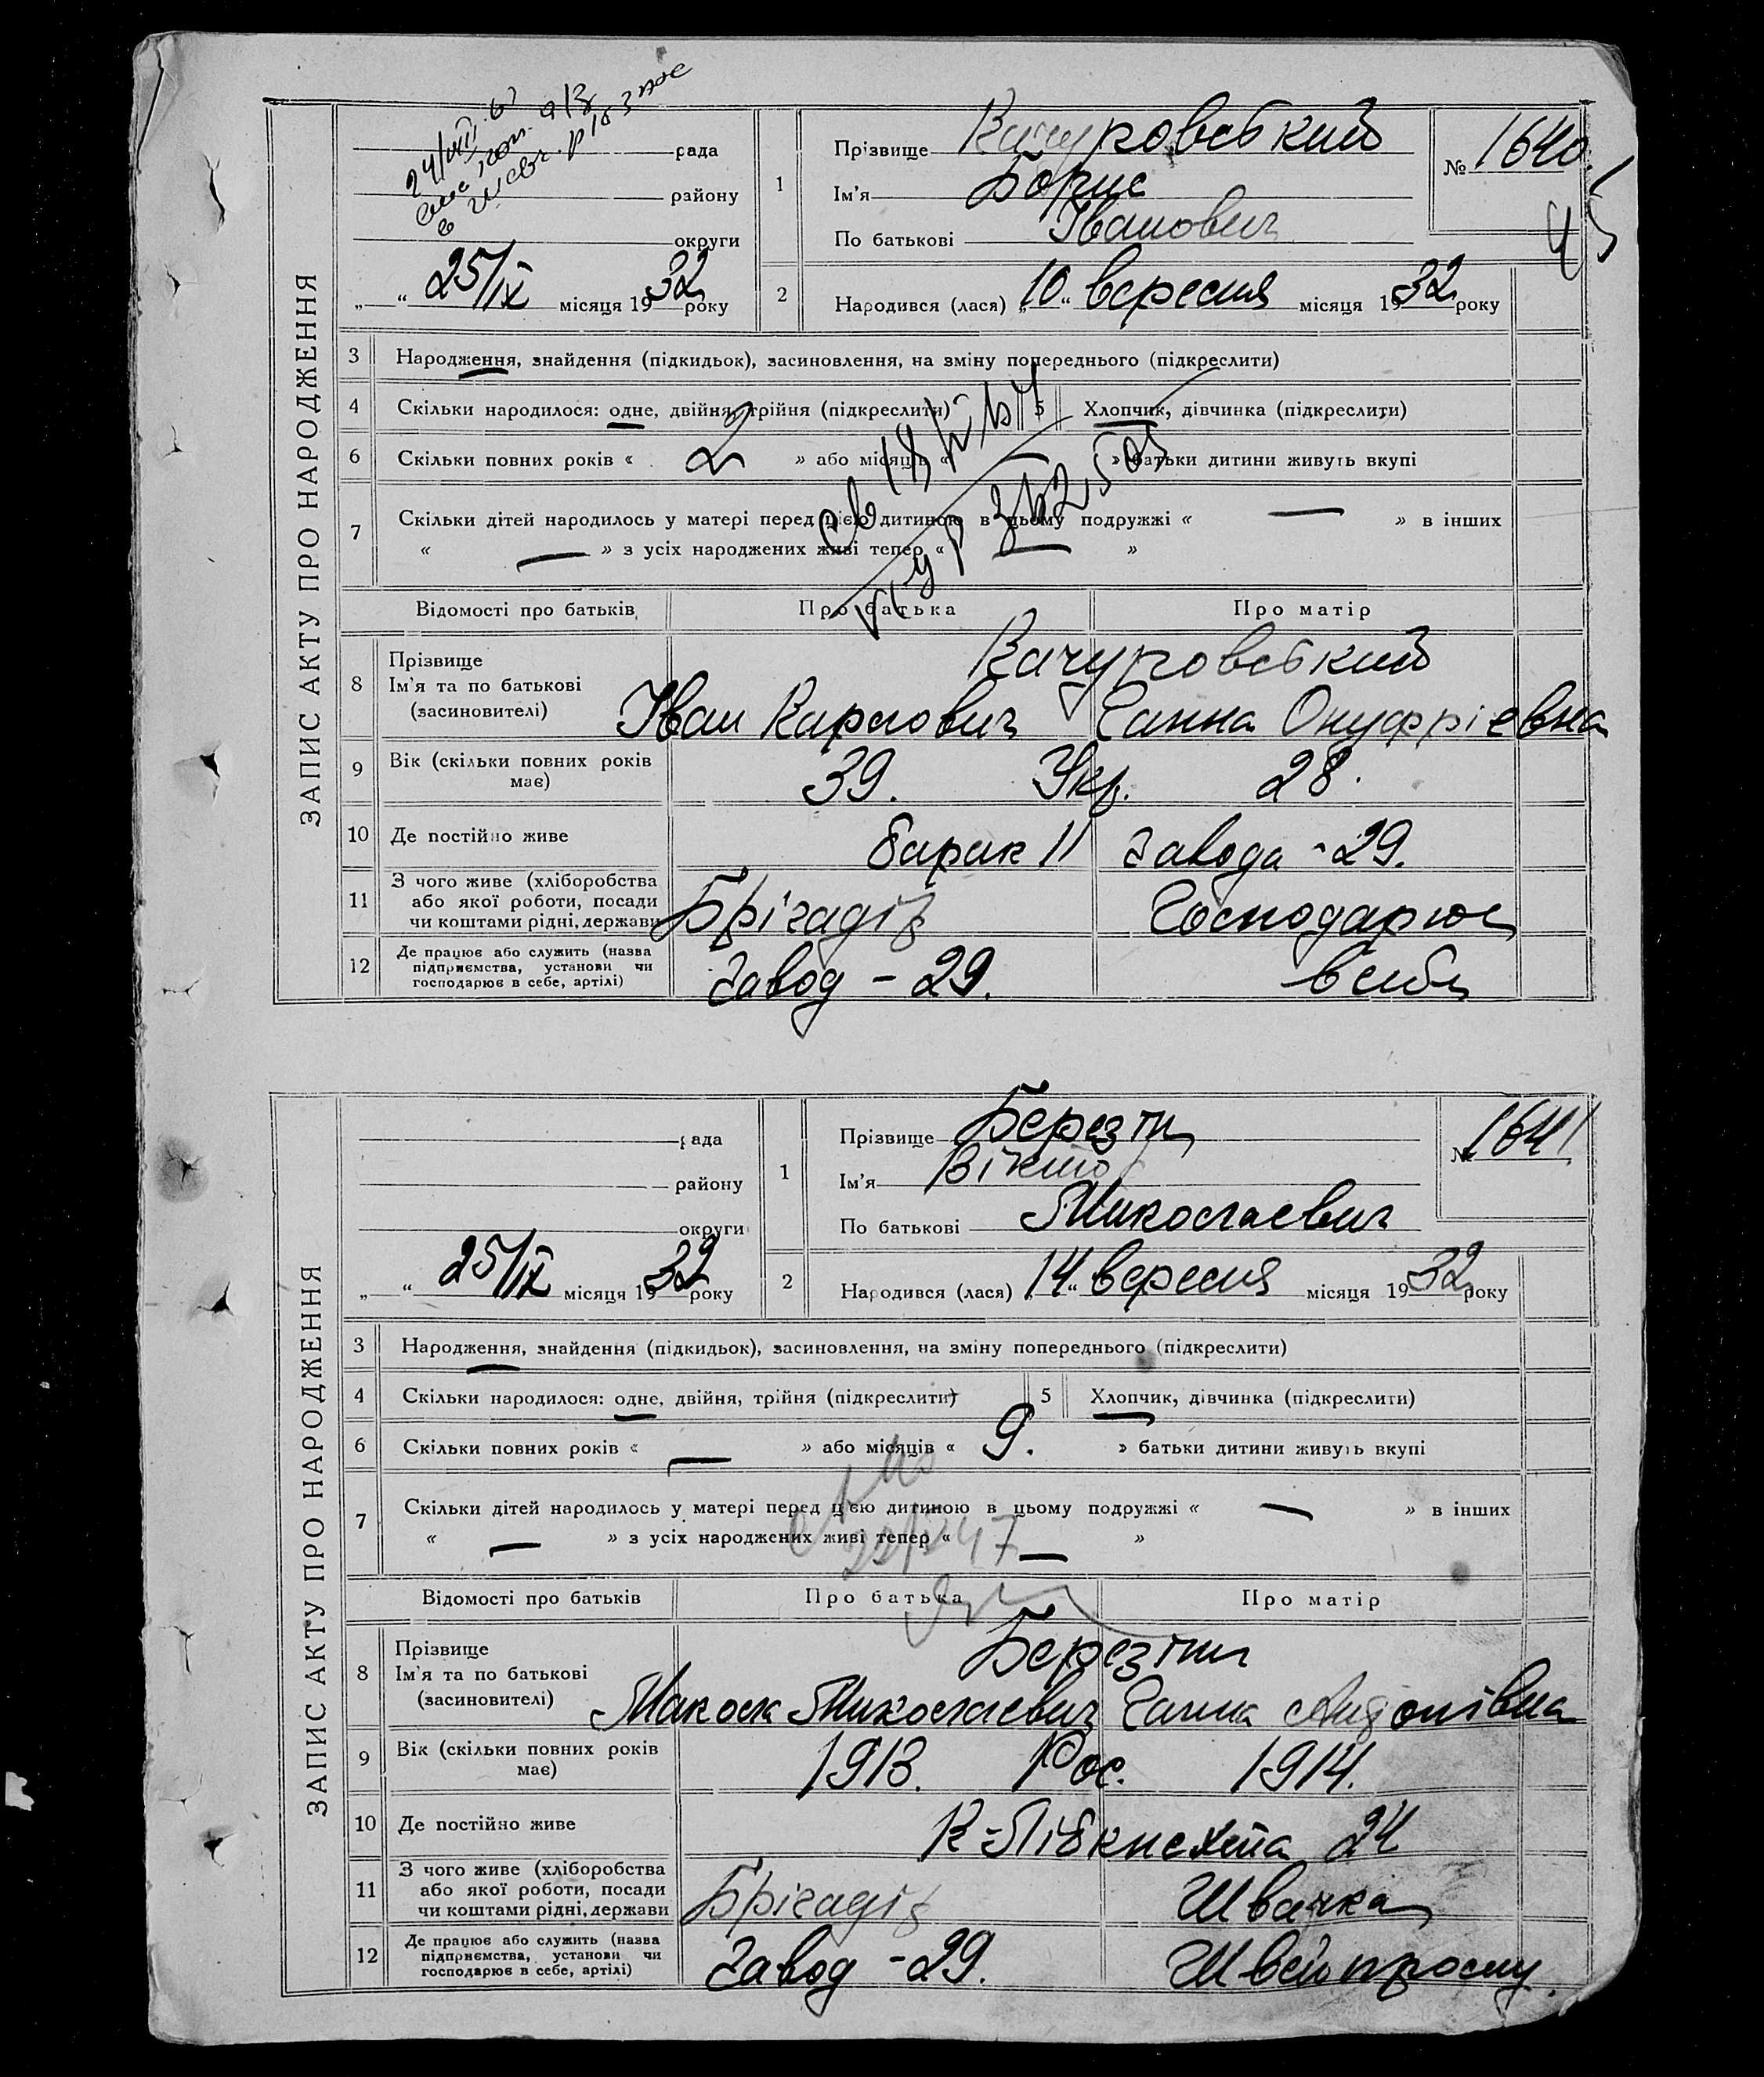 ЗАПИС АКТУ ПРО НАРОДЖЕННЯ
рада
району
округи
„ “ 25/IX місяця 1932 року
1
Прізвище Качуровський
Ім'я Борис
По батькові Іванович
№ 1640
45
2
Народився (лася) „10“ вересня місяця 1932 року
3 Народження, знайдення (підкидьок), засиновлення, на зміну попереднього (підкреслити)
4 Скільки народилося: одне, двійня, трійня (підкреслити) 5 Хлопчик, дівчинка (підкреслити)
6 Скільки повних років « 2 » або місяців « — » батьки дитини живуть вкупі
7 Скільки дітей народилось у матері перед цією дитиною в цьому подружжі « — » в інших
« — » з усіх народжених живі тепер « — »
Відомості про батьків Про батька Про матір
8 Прізвище
Ім'я та по батькові
(засиновителі)
Качуровський
Іван Карпович Ганна Онуфріевна
9 Вік (скільки повних років має) 39. Укр. 28.
10 Де постійно живе барак 11 завода - 29.
11 З чого живе (хліборобства або якої роботи, посади чи коштами рідні, держави Брігадір Господарює
12 Де працює або служить (назва підприємства, установи чи господарює в себе, артілі) Завод - 29. в себе
ЗАПИС АКТУ ПРО НАРОДЖЕННЯ
рада
району
округи
„ “ 25/IX місяця 1932 року
1
Прізвище
Ім'я Віктор
По батькові Миколаевич
№ 1641
2
Народився (лася) „14“ вересня місяця 1932 року
3 Народження, знайдення (підкидьок), засиновлення, на зміну попереднього (підкреслити)
4 Скільки народилося: одне, двійня, трійня (підкреслити) 5 Хлопчик, дівчинка (підкреслити)
6 Скільки повних років « — » або місяців « 9. » батьки дитини живуть вкупі
7 Скільки дітей народилось у матері перед цією дитиною в цьому подружжі « — » в інших
« — » з усіх народжених живі тепер « — »
Відомості про батьків Про батька Про матір
8 Прізвище
Ім'я та по батькові
(засиновителі)
Микола Миколаевич Ганна Андронівна
9 Вік (скільки повних років має) 1913. Рос. 1914.
10 Де постійно живе К-Лібкнехта 24
11 З чого живе (хліборобства або якої роботи, посади чи коштами рідні, держави Брігадір Швачка
12 Де працює або служить (назва підприємства, установи чи господарює в себе, артілі) Завод - 29. Швейпром